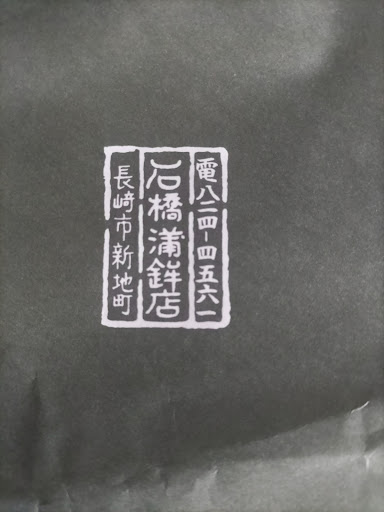 電八二四-四五六一
石橋蒲鉾店
長崎市新地町